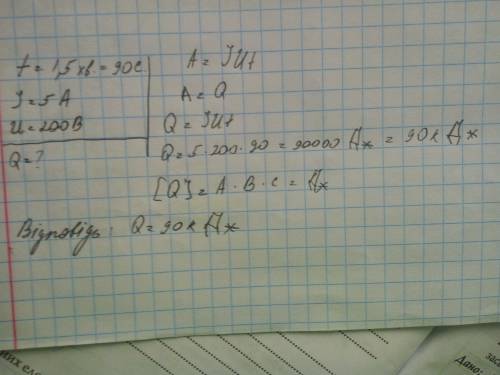 t = 1,5 хв. = 90 с.
J = 5 A
U = 200 В
Q = ?
A = JUt
A = Q
Q = JUt
Q = 5 · 200 · 90 = 90000 Дж = 90 к Дж
[Q] = A · В · с = Дж
Відповідь: Q = 90 к Дж
Дано: